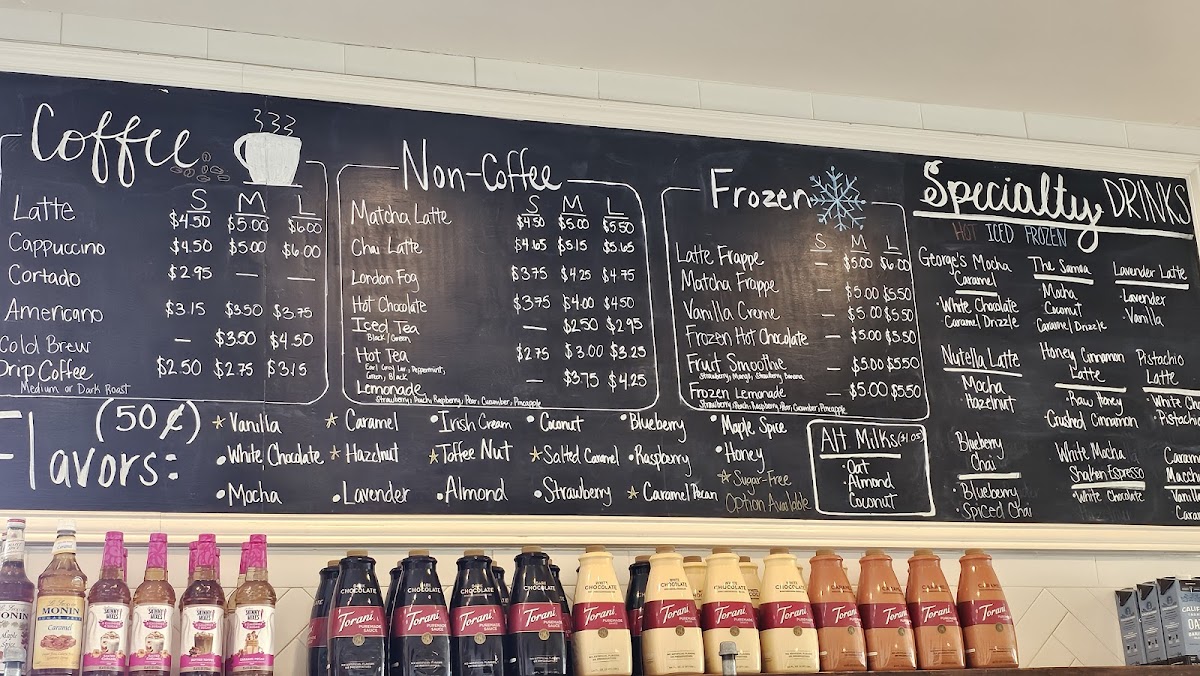 Coffee
S M L
Latte $4.50 $5.00 $6.00
Cappuccino $4.50 $5.00 $6.00
Cortado $2.95 — —
Americano $3.15 $3.50 $3.75
Cold Brew — $3.50 $4.50
Drip Coffee $2.50 $2.75 $3.15
Medium or Dark Roast
Non-Coffee
S M L
Matcha Latte $4.50 $5.00 $5.50
Chai Latte $4.65 $5.15 $5.65
London Fog $3.75 $4.25 $4.75
Hot Chocolate $3.75 $4.00 $4.50
Iced Tea — $2.50 $2.95
Black/Green
Hot Tea $2.75 $3.00 $3.25
Green, Black
Lemonade — $3.75 $4.25
Strawberry, Peach, Raspberry, Pear, Cucumber, Pineapple
Frozen
S M L
Latte Frappe — $5.00 $6.00
Matcha Frappe — $5.00 $5.50
Vanilla Creme — $5.00 $5.50
Frozen Hot Chocolate — $5.00 $5.50
Fruit Smoothie — $5.00 $5.50
Strawberry, Mango, Strawberry Banana
Frozen Lemonade — $5.00 $5.50
Strawberry, Peach, Raspberry, Pear, Cucumber, Pineapple
Specialty DRINKS
HOT ICED FROZEN
George's Mocha
Caramel
• White Chocolate
Caramel Drizzle
The Samoa
• Mocha
Coconut
Caramel Drizzle
Lavender Latte
• Lavender
Vanilla
Nutella Latte
• Mocha
Hazelnut
Honey Cinnamon
Latte
• Raw Honey
Crushed Cinnamon
Pistachio
Latte
• White Cho
Pistachi
Blueberry
Chai
• Blueberry
Spiced Chai
White Mocha
Shaken Espresso
• White Chocolate
Caram
Macch
Vanill
Caram
Flavors:
(50¢)
Vanilla
Caramel
Irish Cream
Coconut
Blueberry
Maple Spice
White Chocolate
Hazelnut
Toffee Nut
Salted Caramel
Raspberry
Honey
Mocha
Lavender
Almond
Strawberry
Caramel Pecan
Sugar-Free
Option Available
Alt Milks
• Oat
Almond
Coconut
MONIN
Caramel
SKINNY MIXES
DARK CHOCOLATE
Torani
PUREMADE SAUCE
WHITE CHOCOLATE
Torani
PUREMADE SAUCE
CARAMEL
Torani
PUREMADE SAUCE